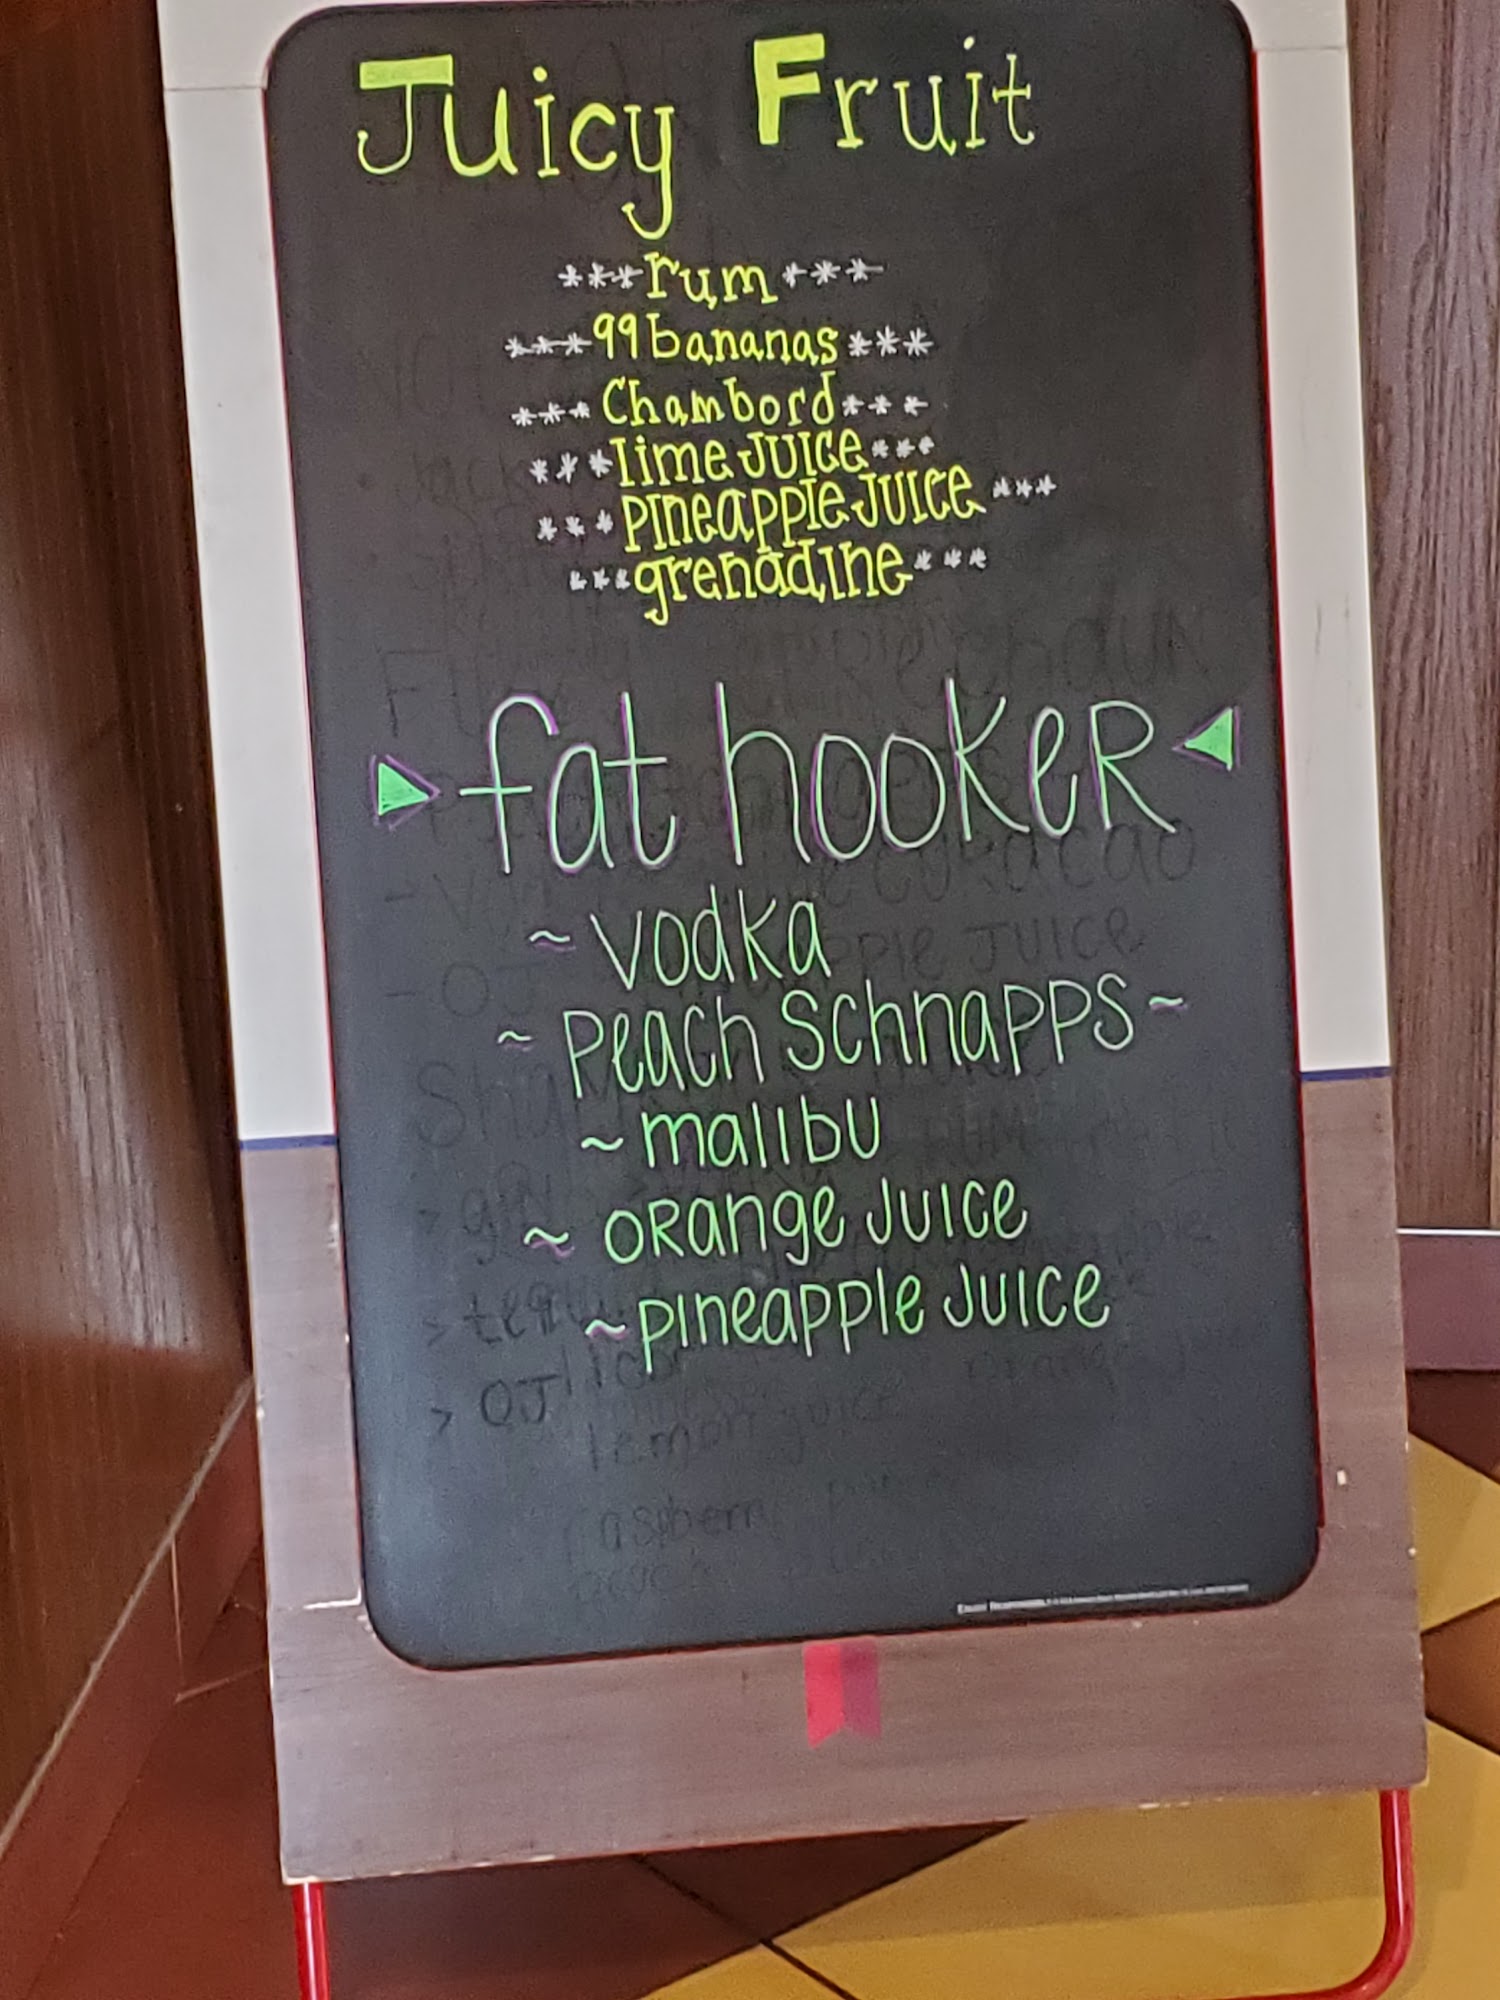 Juicy Fruit
***rum***
***99 bananas***
***Chambord***
***lime JUICE***
***PINeapple JUICE***
***grenadine***
fat hookeR
~ vodka
~ Peach Schnapps ~
~ malibu
~ ORange Juice
~ pineapple Juice
- OJ
apple Juice
> OJ
lemon juice